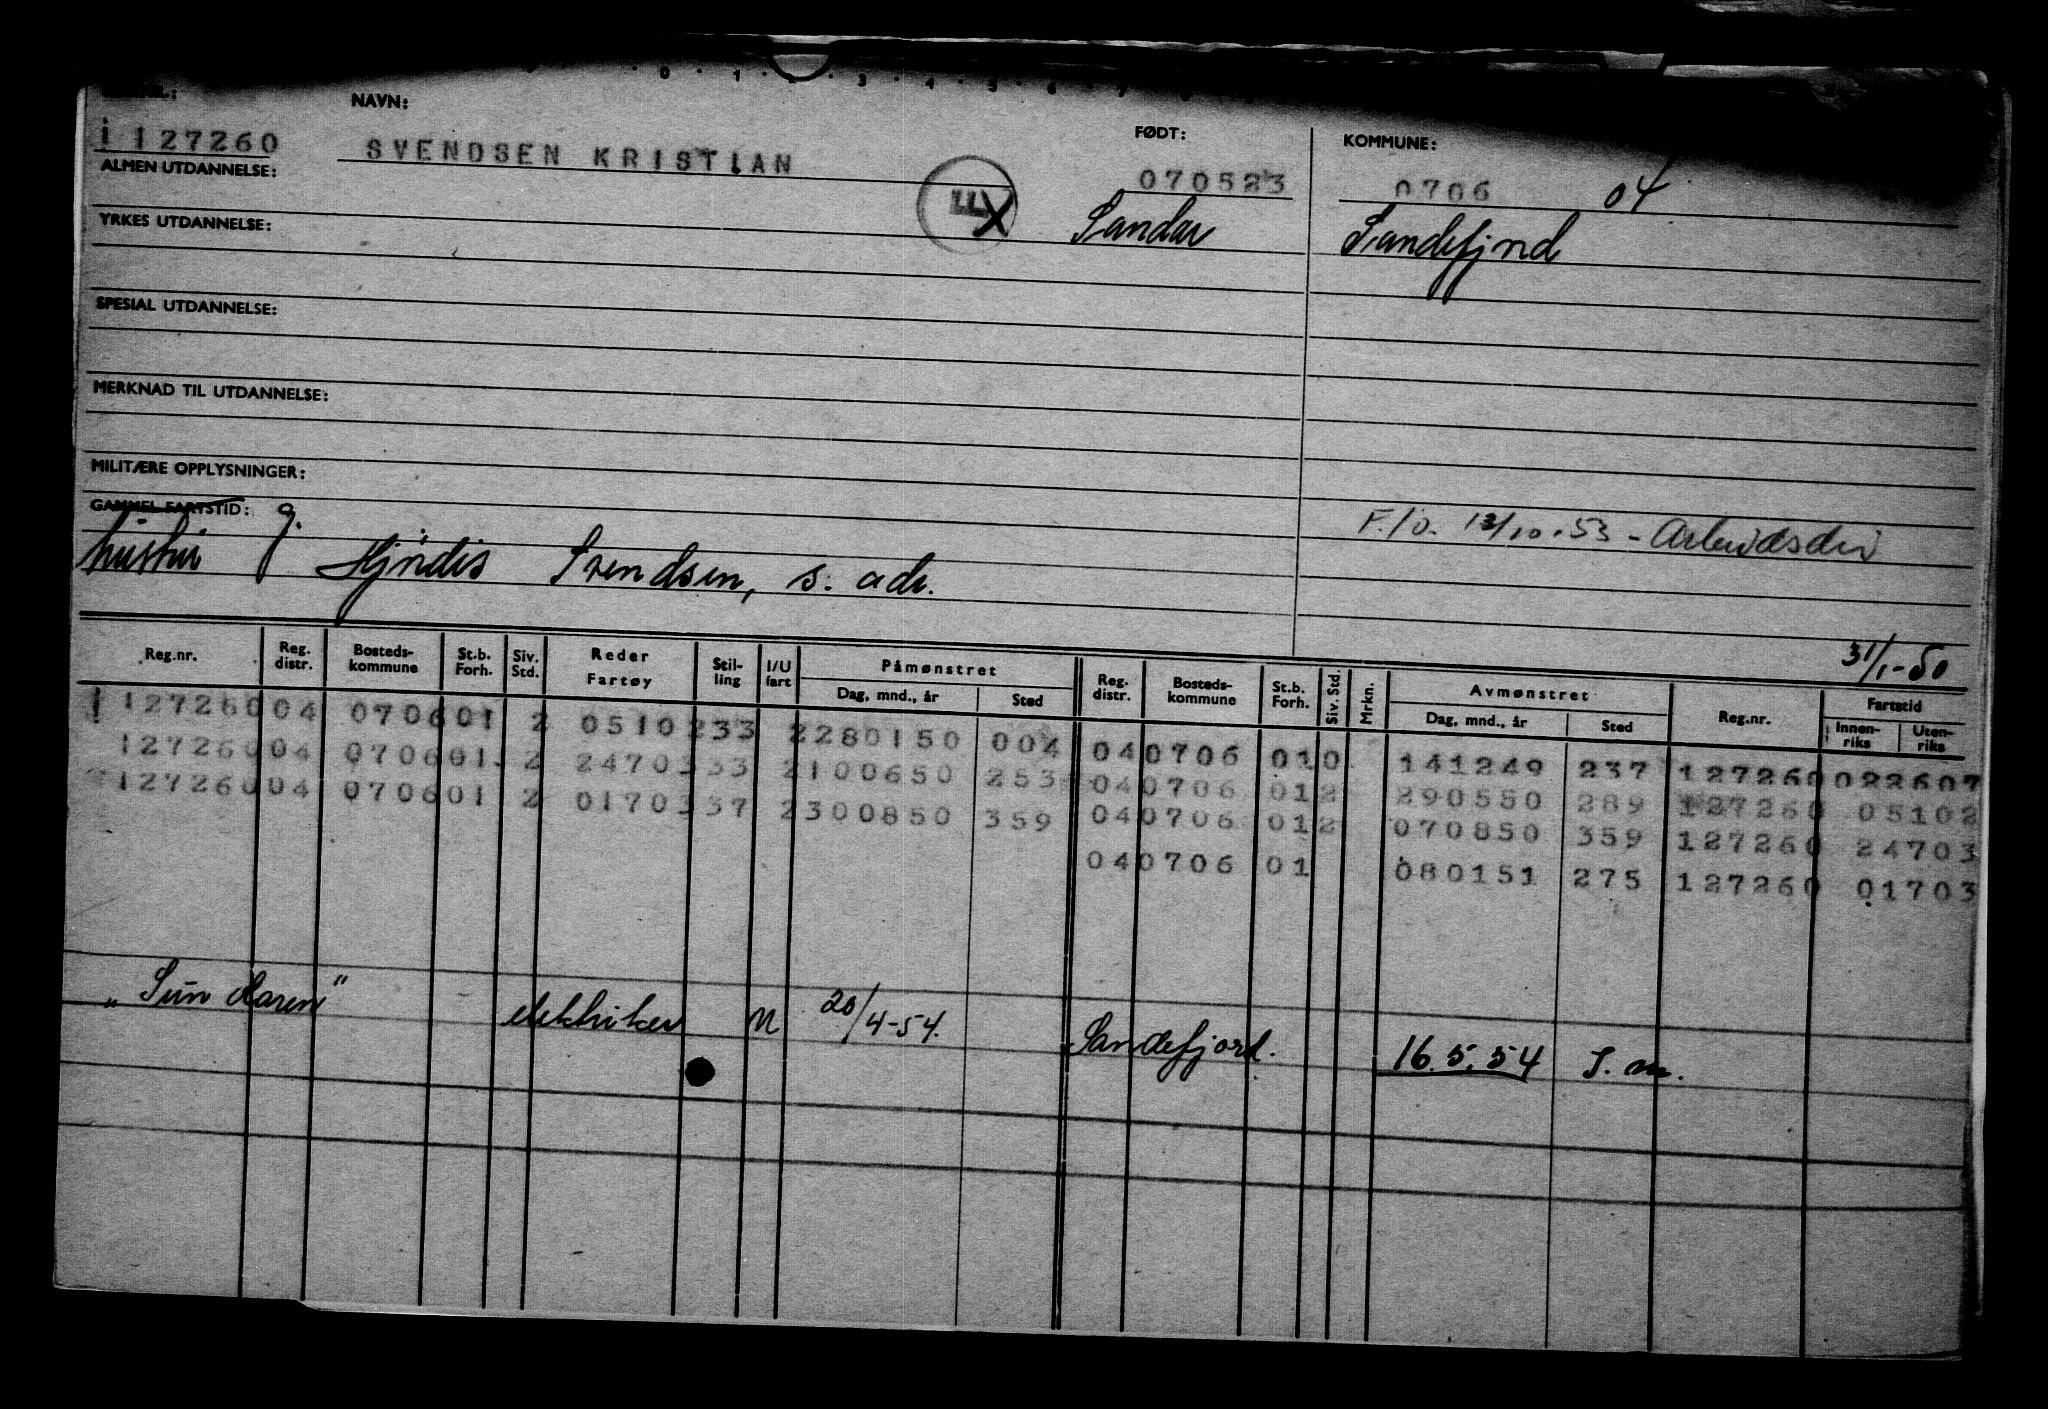 0 1 2 3 4 5 6 7
NAVN: FØDT: KOMMUNE:
i 127260 SVENDSEN KRISTIAN 070523 0706 04
ALMEN UTDANNELSE: Sandar Sandefjord
YRKES UTDANNELSE:
SPESIAL UTDANNELSE:
MERKNAD TIL UTDANNELSE:
MILITÆRE OPPLYSNINGER:
GAMMEL FARTSTID: g. F./o. 13/10.53 - Arbeidsdir
hustru Hjørdis Svendsen, s. adr.
31/1-50
Reg.nr. Reg. distr. Bosteds-kommune St.b. Forh. Siv. Std. Reder Fartøy Stil-ling I/U fart Påmønstret Dag, mnd., år Sted Reg. distr. Bosteds-kommune St.b. Forh. Siv. Std. Mrkn. Avmønstret Dag, mnd., år Sted Reg.nr. Fartstid Innen-riks Uten-riks
127260 04 0706 01 2 0510 233 2 280150 004 04 0706 01 0 141249 237 127260 022607
127260 04 0706 01 2 2470 333 2 100650 253 04 0706 01 2 290550 289 127260 05102
127260 04 0706 01 2 0170 337 2 300850 359 04 0706 01 2 070850 359 127260 24703
04 0706 01 080151 275 127260 01703
"Sun Karen" elektriker U 20/4-54. Sandefjord. 16.5.54 S.m.